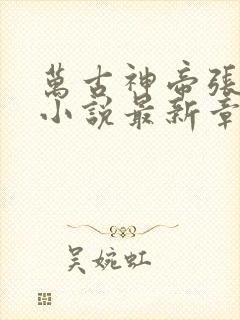 萬古神帝張
小說最新章
吳婉虹